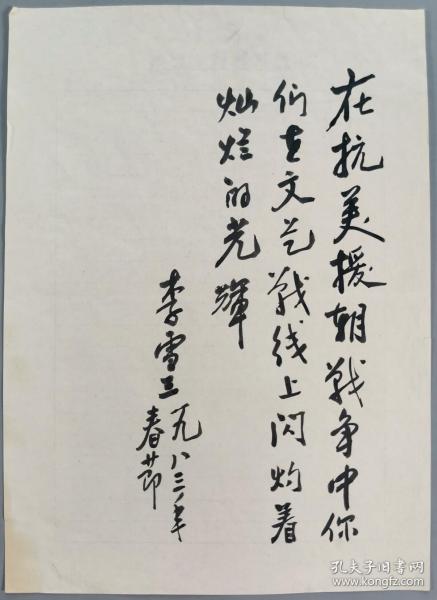 在抗美援朝战争中你
们在文艺战线上闪灼着
灿烂的光辉
李雪三
一九八三年
春节
孔夫子旧书网
kongfz.com